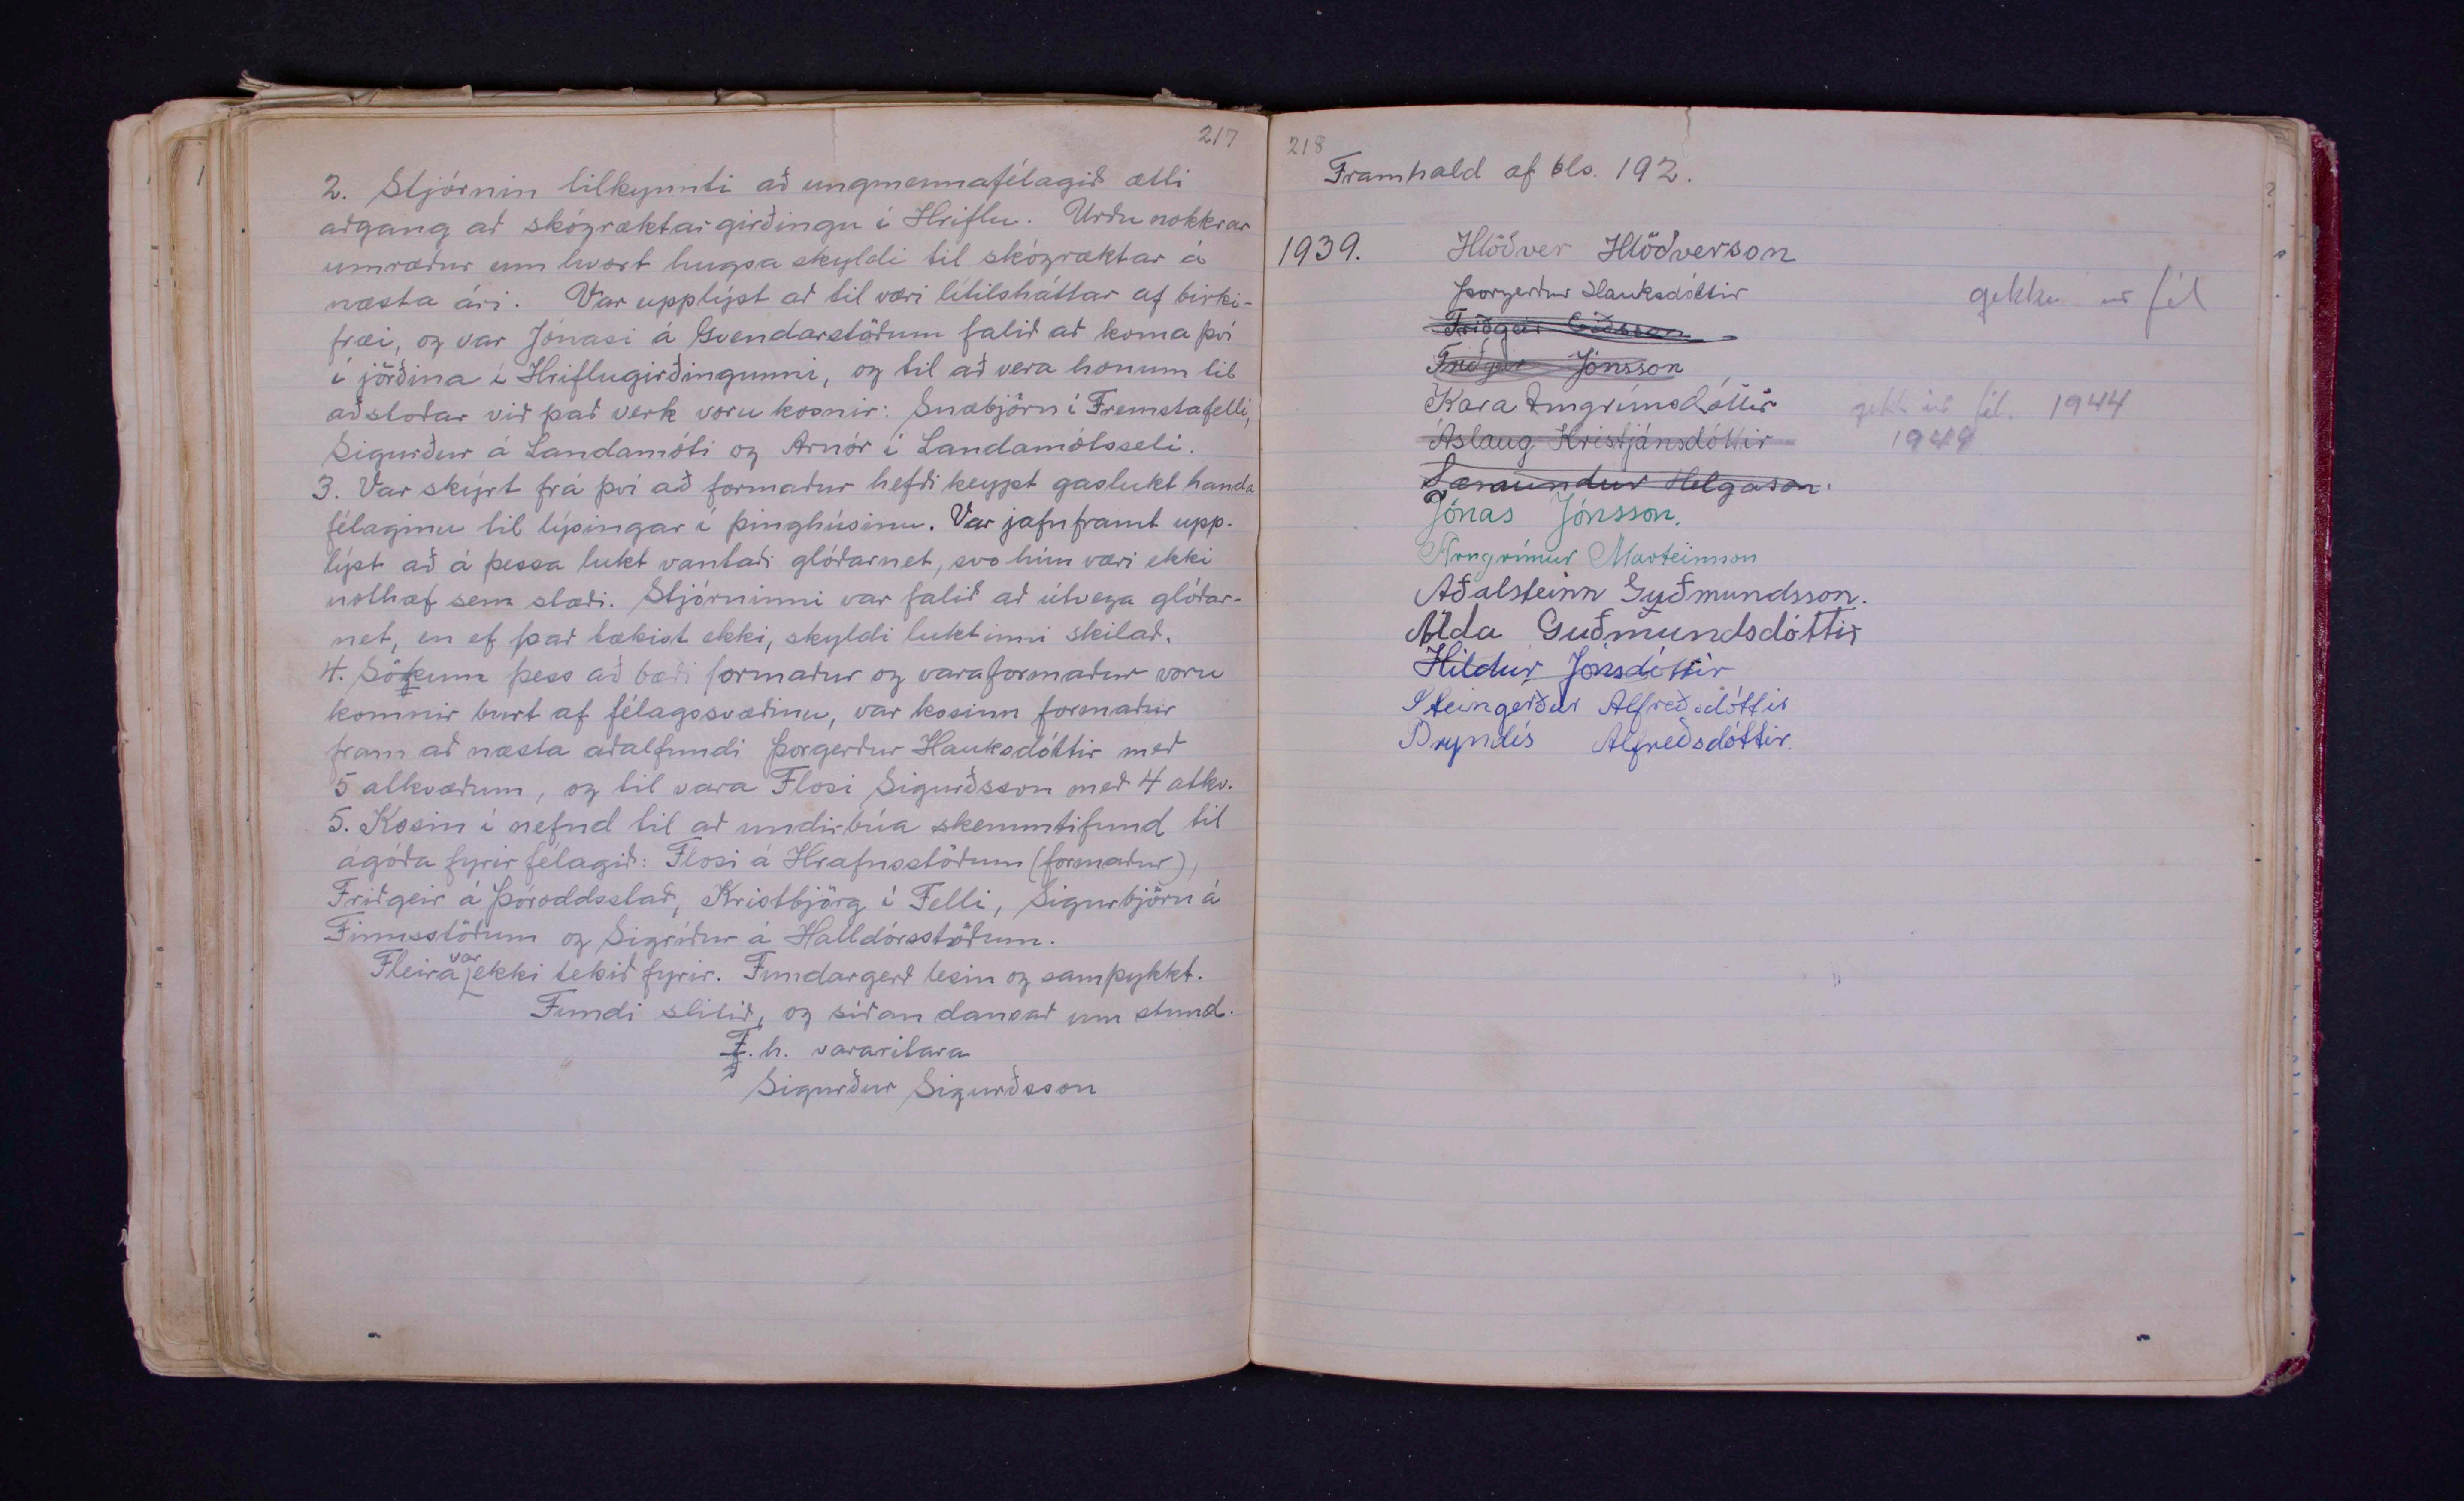 217
2. Stjórnin tilkynnti að ungmennafélagið ætti
aðgang að skógræktargirðingu í Hriflu. Urðu nokkrar
umræður um hvort hugsa skyldi til skógræktar á
næsta ári. Var upplýst að til væri lítilsháttar af birki-
fræi, og var Jónasi á Gvendarstöðum falið að koma því
í jörðina í Hriflugirðingunni, og til að vera honum til
aðstoðar við það verk voru kosnir: Snæbjörn í Fremstafelli,
Sigurður á Landamóti og Arnór í Landamótsseli.
3. Var skýrt frá því að formaður hefði keypt gaslukt handa
félaginu til lýsingar í þinghúsinu. Var jafnframt upp-
lýst að á þessa lukt vantaði glóðarnet, svo hún væri ekki
nothæf sem stæði. Stjórninni var falið að útvega glóðar-
net, en ef það tækist ekki, skyldi luktinni skilað.
4. Sökum þess að bæði formaður og varaformaður voru
komnir burt af félagssvæðinu, var kosinn formaður
fram að næsta aðalfundi Þorgerður Hauksdóttir með
5 atkvæðum, og til vara Flosi Sigurðsson með 4 atkv.
5. Kosin í nefnd til að undirbúa skemmtifund til
ágóða fyrir félagið: Flosi á Hrafnsstöðum (formaður),
Friðgeir á Þóroddsstað, Kristbjörg í Felli, Sigurbjörn á
Finnsstöðum og Sigríður á Halldórsstöðum.
Fleira var ekki tekið fyrir. Fundargerð lesin og samþykkt.
Fundi slitið, og síðan dansað um stund.
F. h. vararitara
Sigurður Sigurðsson
218
Framhald af bls. 192.
1939. Hlöðver Hlöðverson
Þorgerður Hauksdóttir gekk úr fél
Friðgeir
Jónsson
Kara Arngrímsdóttir gekk úr fél. 1944
Áslaug Kristjánsdóttir 1949
Sæmundur Helgason.
Jónas Jónsson.
Arngrímur Marteinsson
Aðalsteinn Guðmundsson.
Alda Guðmundsdóttir
Hildur Jónsdóttir
Steingerður Alfreðsdóttir
Bryndís Alfreðsdóttir.